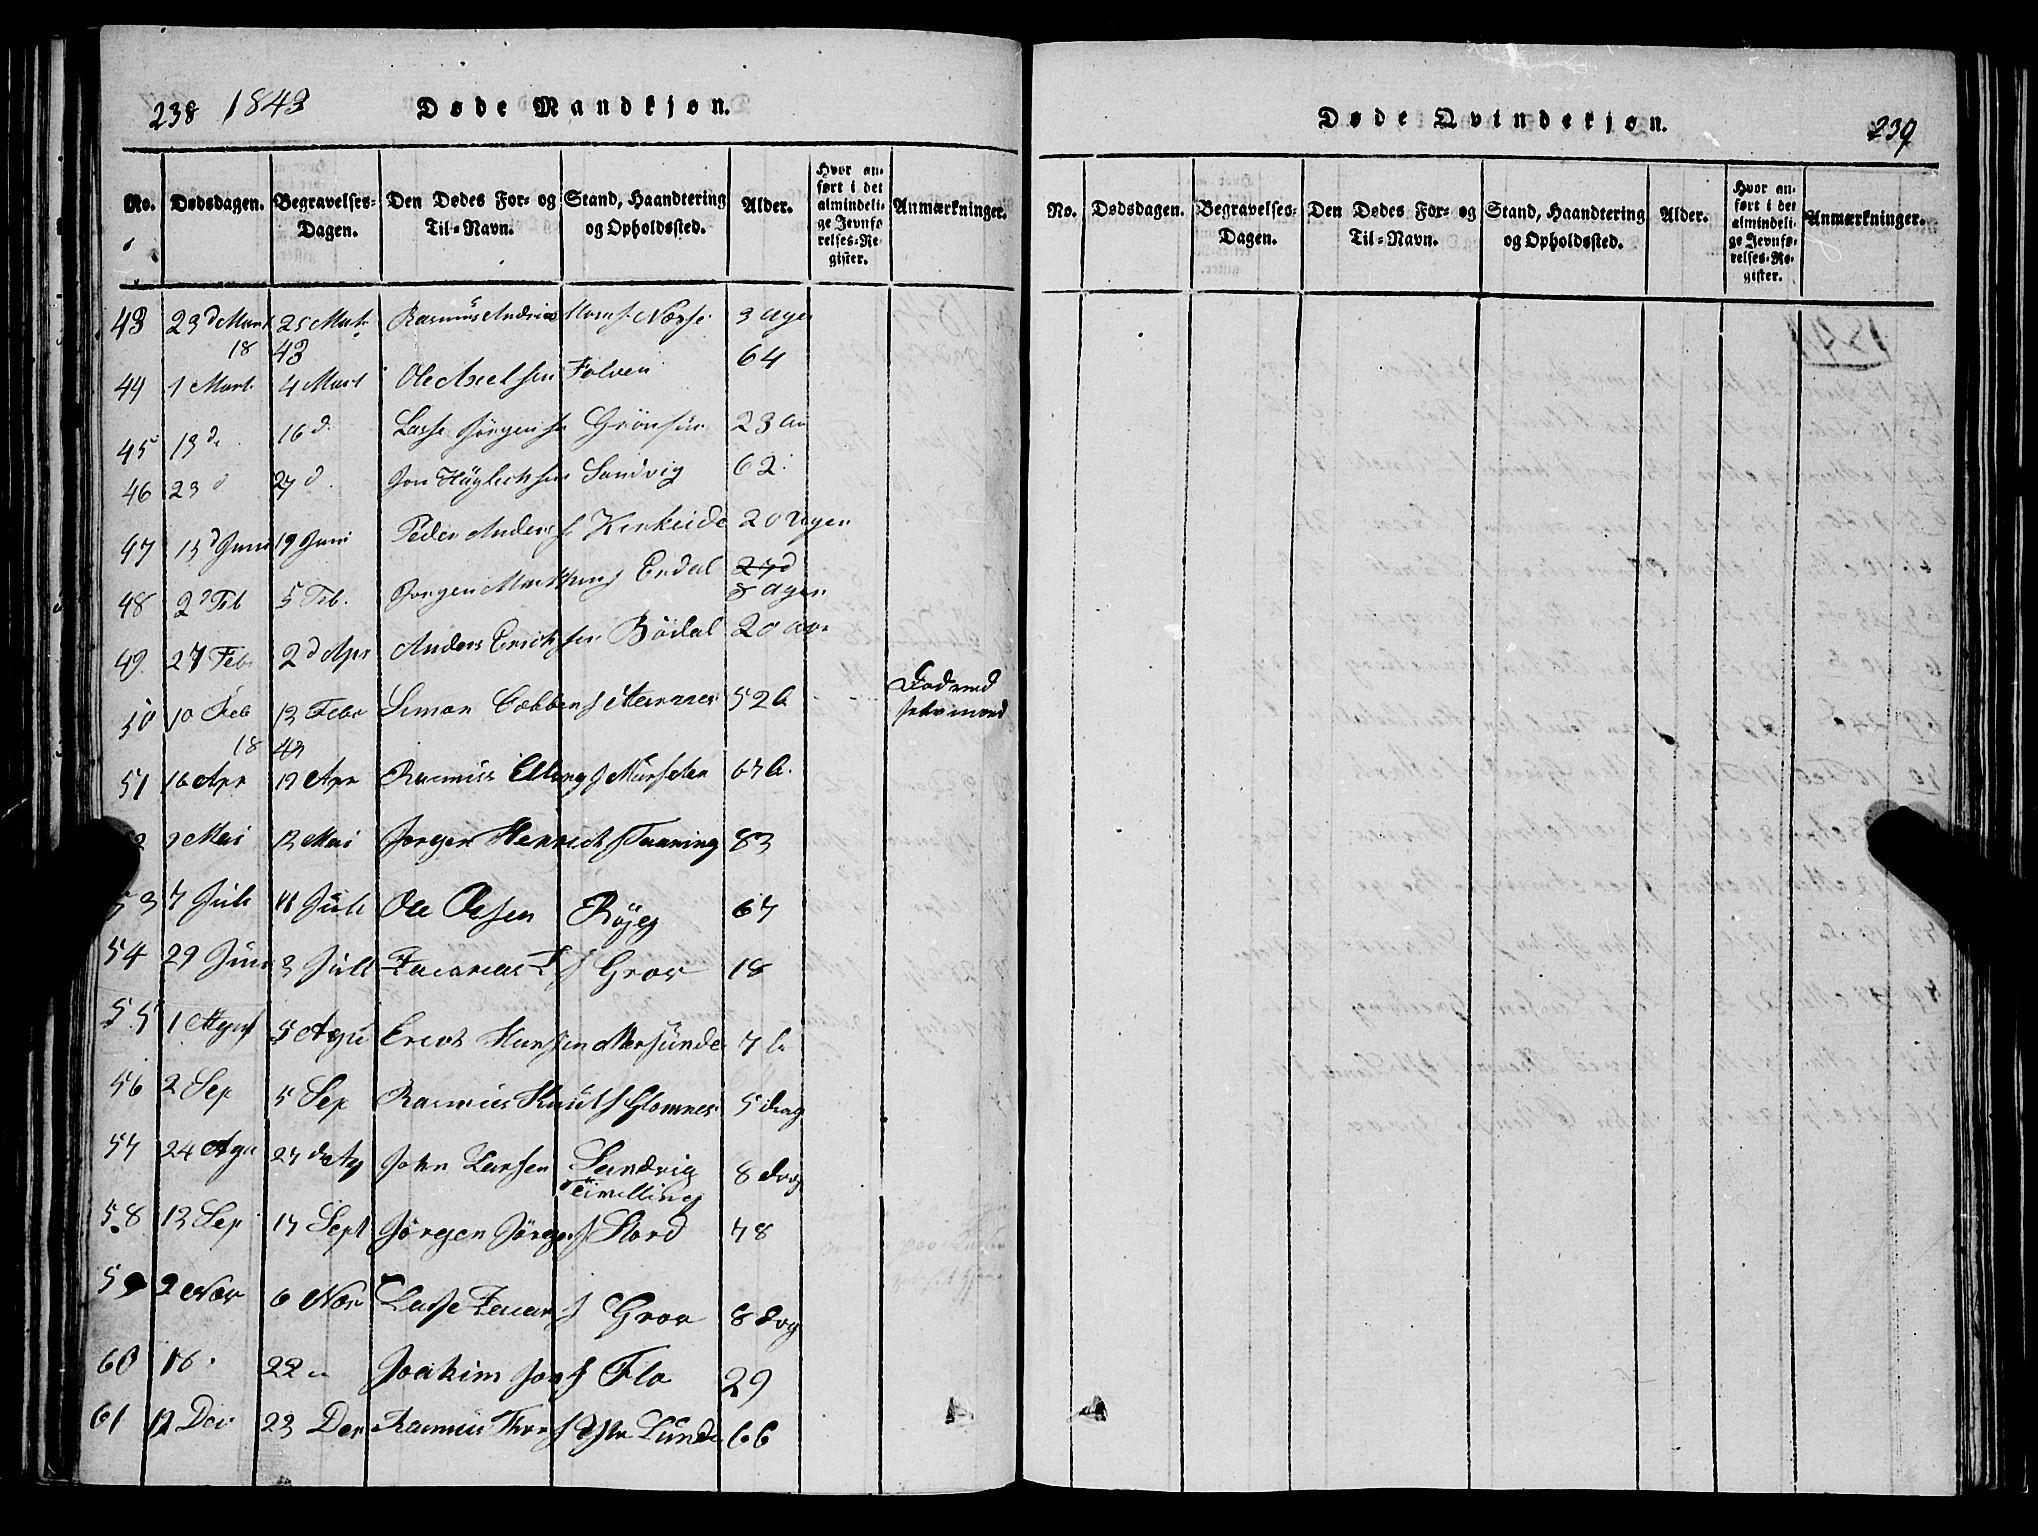 238 1843 Døde Mandkjøn.
No. Dødsdagen. Begravelses-Dagen. Den Dødes For- og Til-Navn. Stand, Haandtering og Opholdssted. Alder. Hvor anført i det almindelige Jevnførelses-Register. Anmærkninger.
43 23 d Mart 25 Mart Rasmus Andrias Monss. Nosse 3 Uger
18 43
44 1 Mart 4 Mart Ole Axelsen Folven 64
45 13 d. 16 d. Lasse Jörgensen 23
46 23 d 27 d. Jon Sandvig 62
47 13 d Juni 19 Juni Peder Anders s Kirkeide 20 Uger
48 2 d Feb 5 Feb. Jorgen Erdal 27 d
8 dger
49 27 Feb 2 d Apr Anders Erichsen Bödal 20
50 10 Feb 13 Febr Simon 52 Död ved
Selvmord
18 43
51 16 Apr 19 Apr Rasmus Elling s 67
Mai 13 Mai Jorgen Henrich s Tanning 83
53 7 Juli 11 Juli Ole Olsen Röyeg 67
54 29 Juni 3 Juli Zacarias Z s Grov 18
55 1 Agust 5 Agu Erich Hansen 7
56 2 Sep 5 Sep Rasmus Knuds Glomnes 5 dag
57 24 Agu 27 de Ag John Larsen Sandvig 8 dag
Tvilling
58 13 Sep 17 Sept Jörgen Jörgen s Stord 78
59 2 Nov 6 Nov Lasse Zacar s Grov 8 dag
60 16 22 Joakim Jon s Flo 29
61 12 Dec 23 Dec Rasmus Thor s Lunde 66
Døde Qvindekjøn. 239
No. Dødsdagen. Begravelses-Dagen. Den Dødes For- og Til-Navn. Stand, Haandtering og Opholdssted. Alder. Hvor anført i det almindelige Jevnførelses-Register. Anmærkninger.